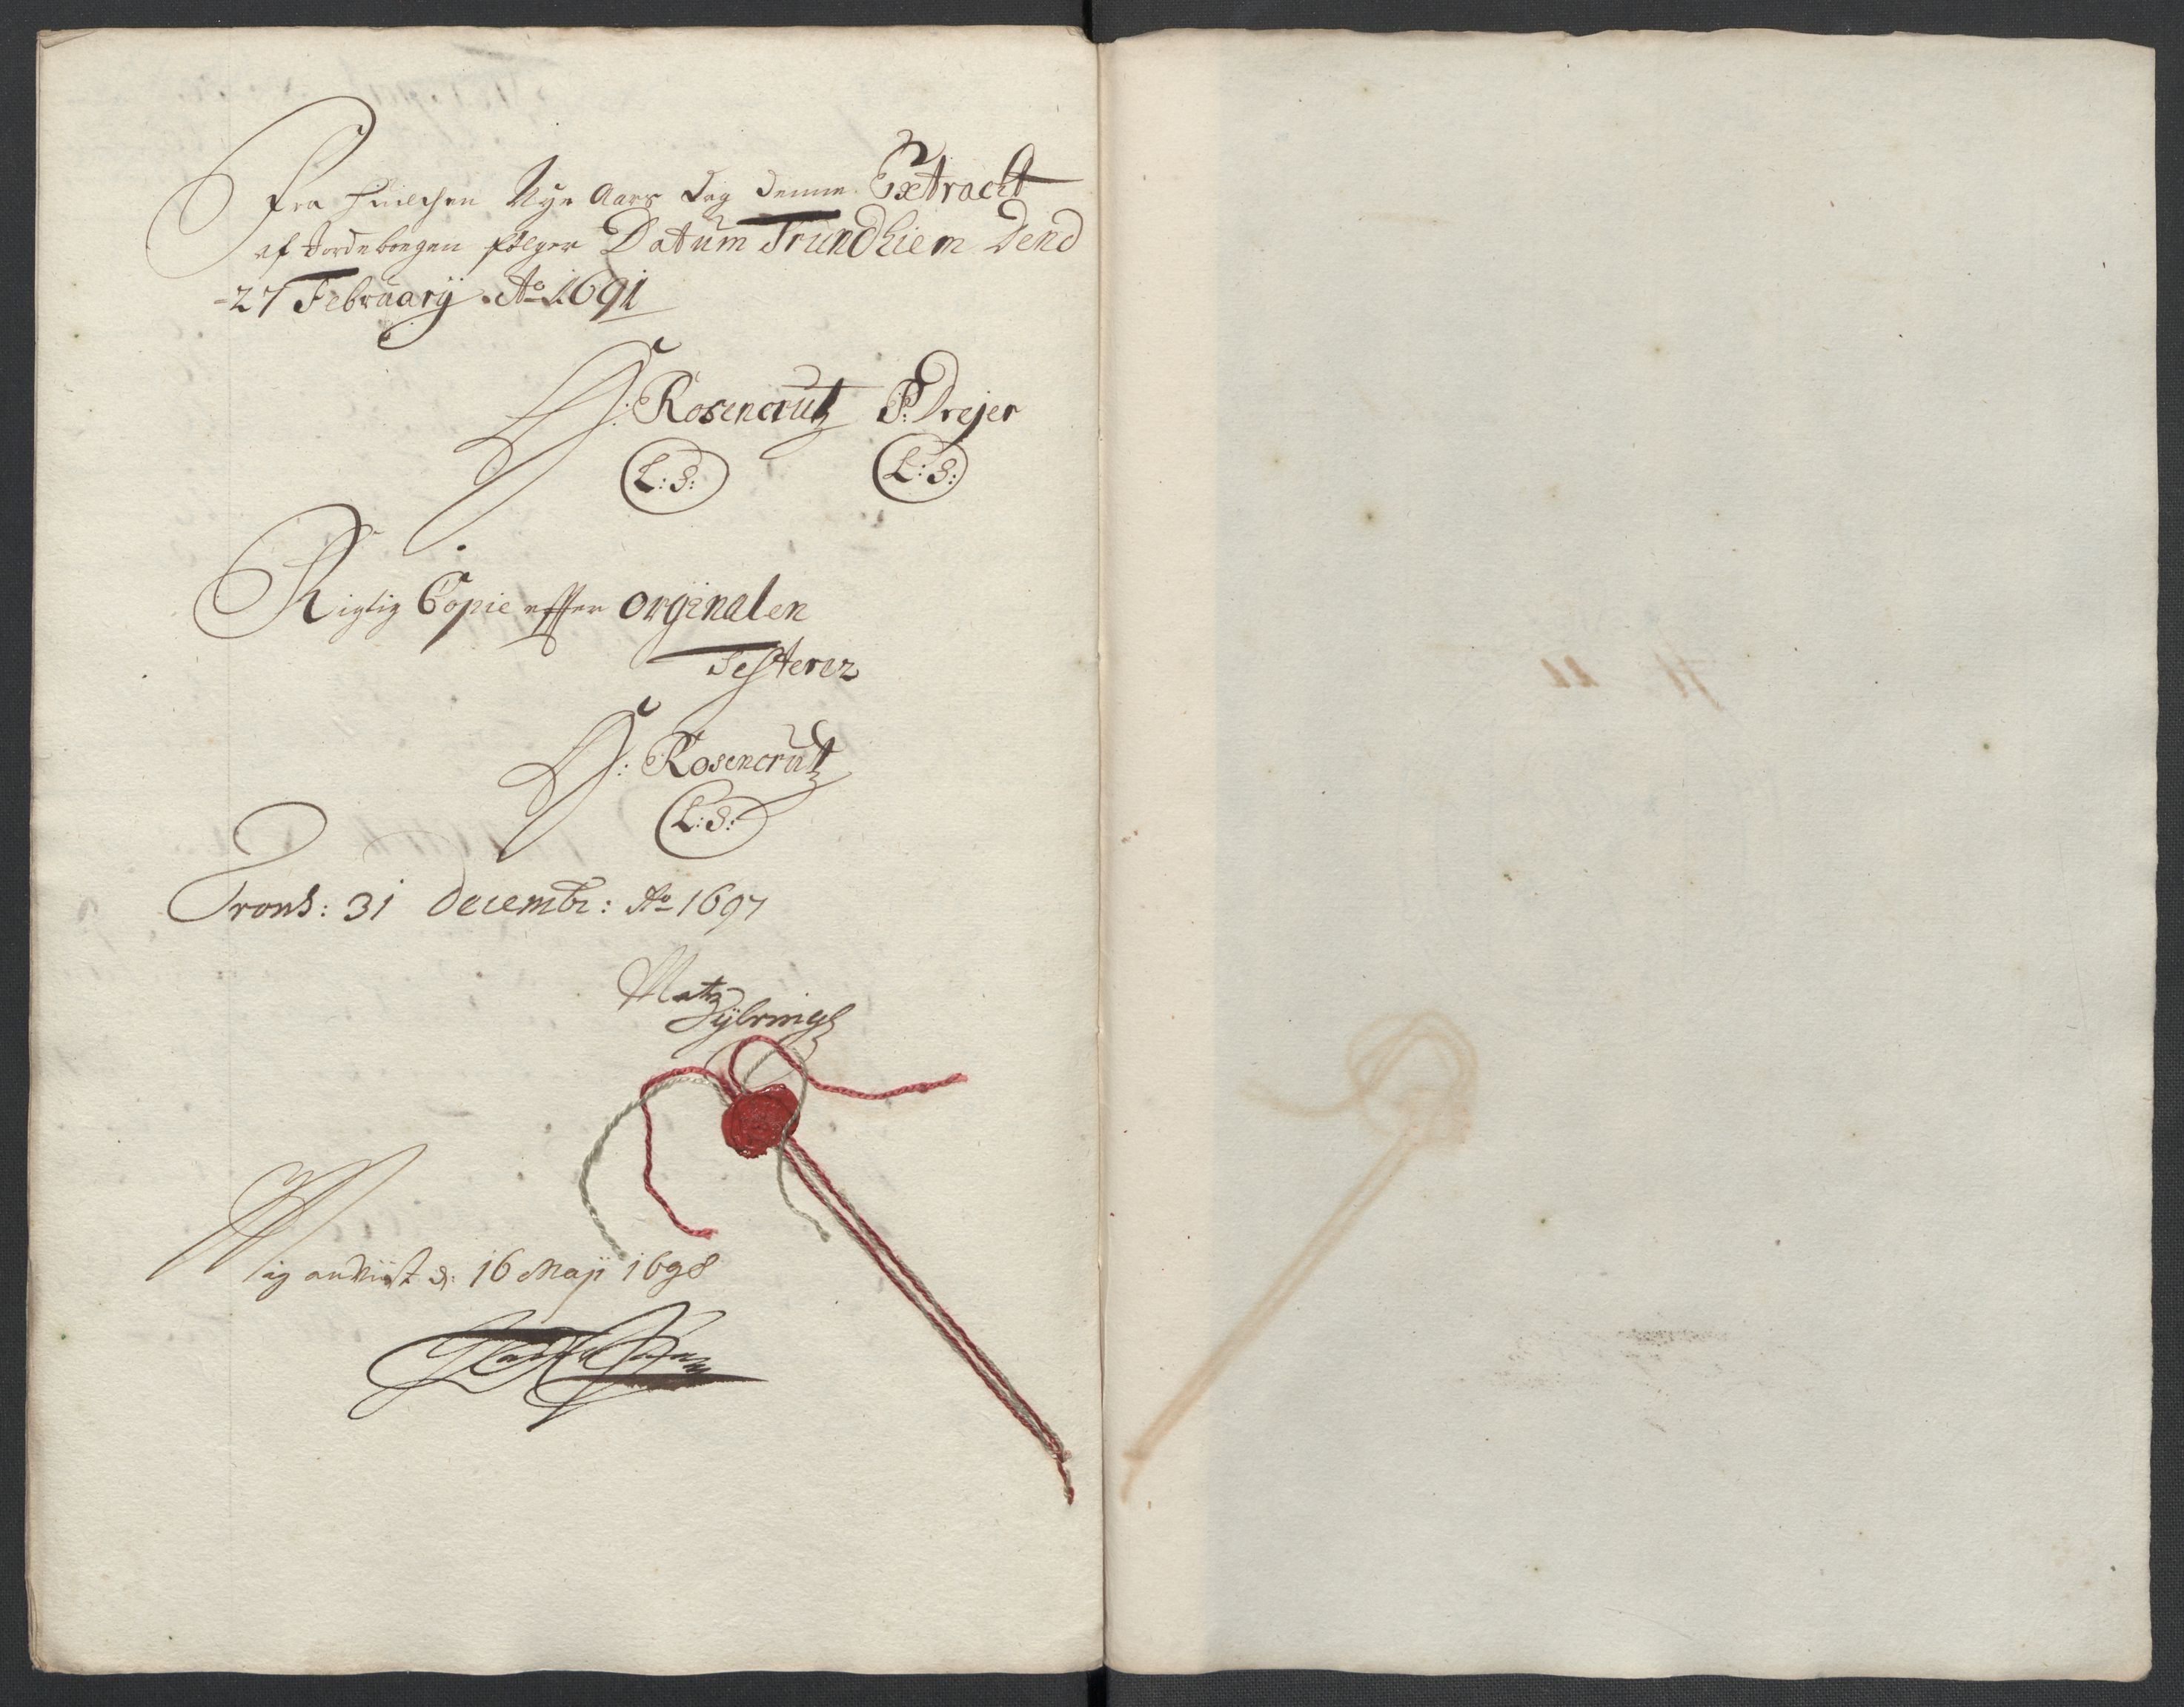 Fra Huilchen Nye Aars dag denne Extract
af Jordebogen følger Datum Trundhiem Dend
27 Februarij Ao 1691
H: Rosencrutz P: Drejer
L: S: L: S:
Rigtig Copie effter orginalen
Testerer
H: Rosencrutz
L: S:
Trons: 31 Decembr: Ao 1697
Matz
anviist d: 16 Maji 1698